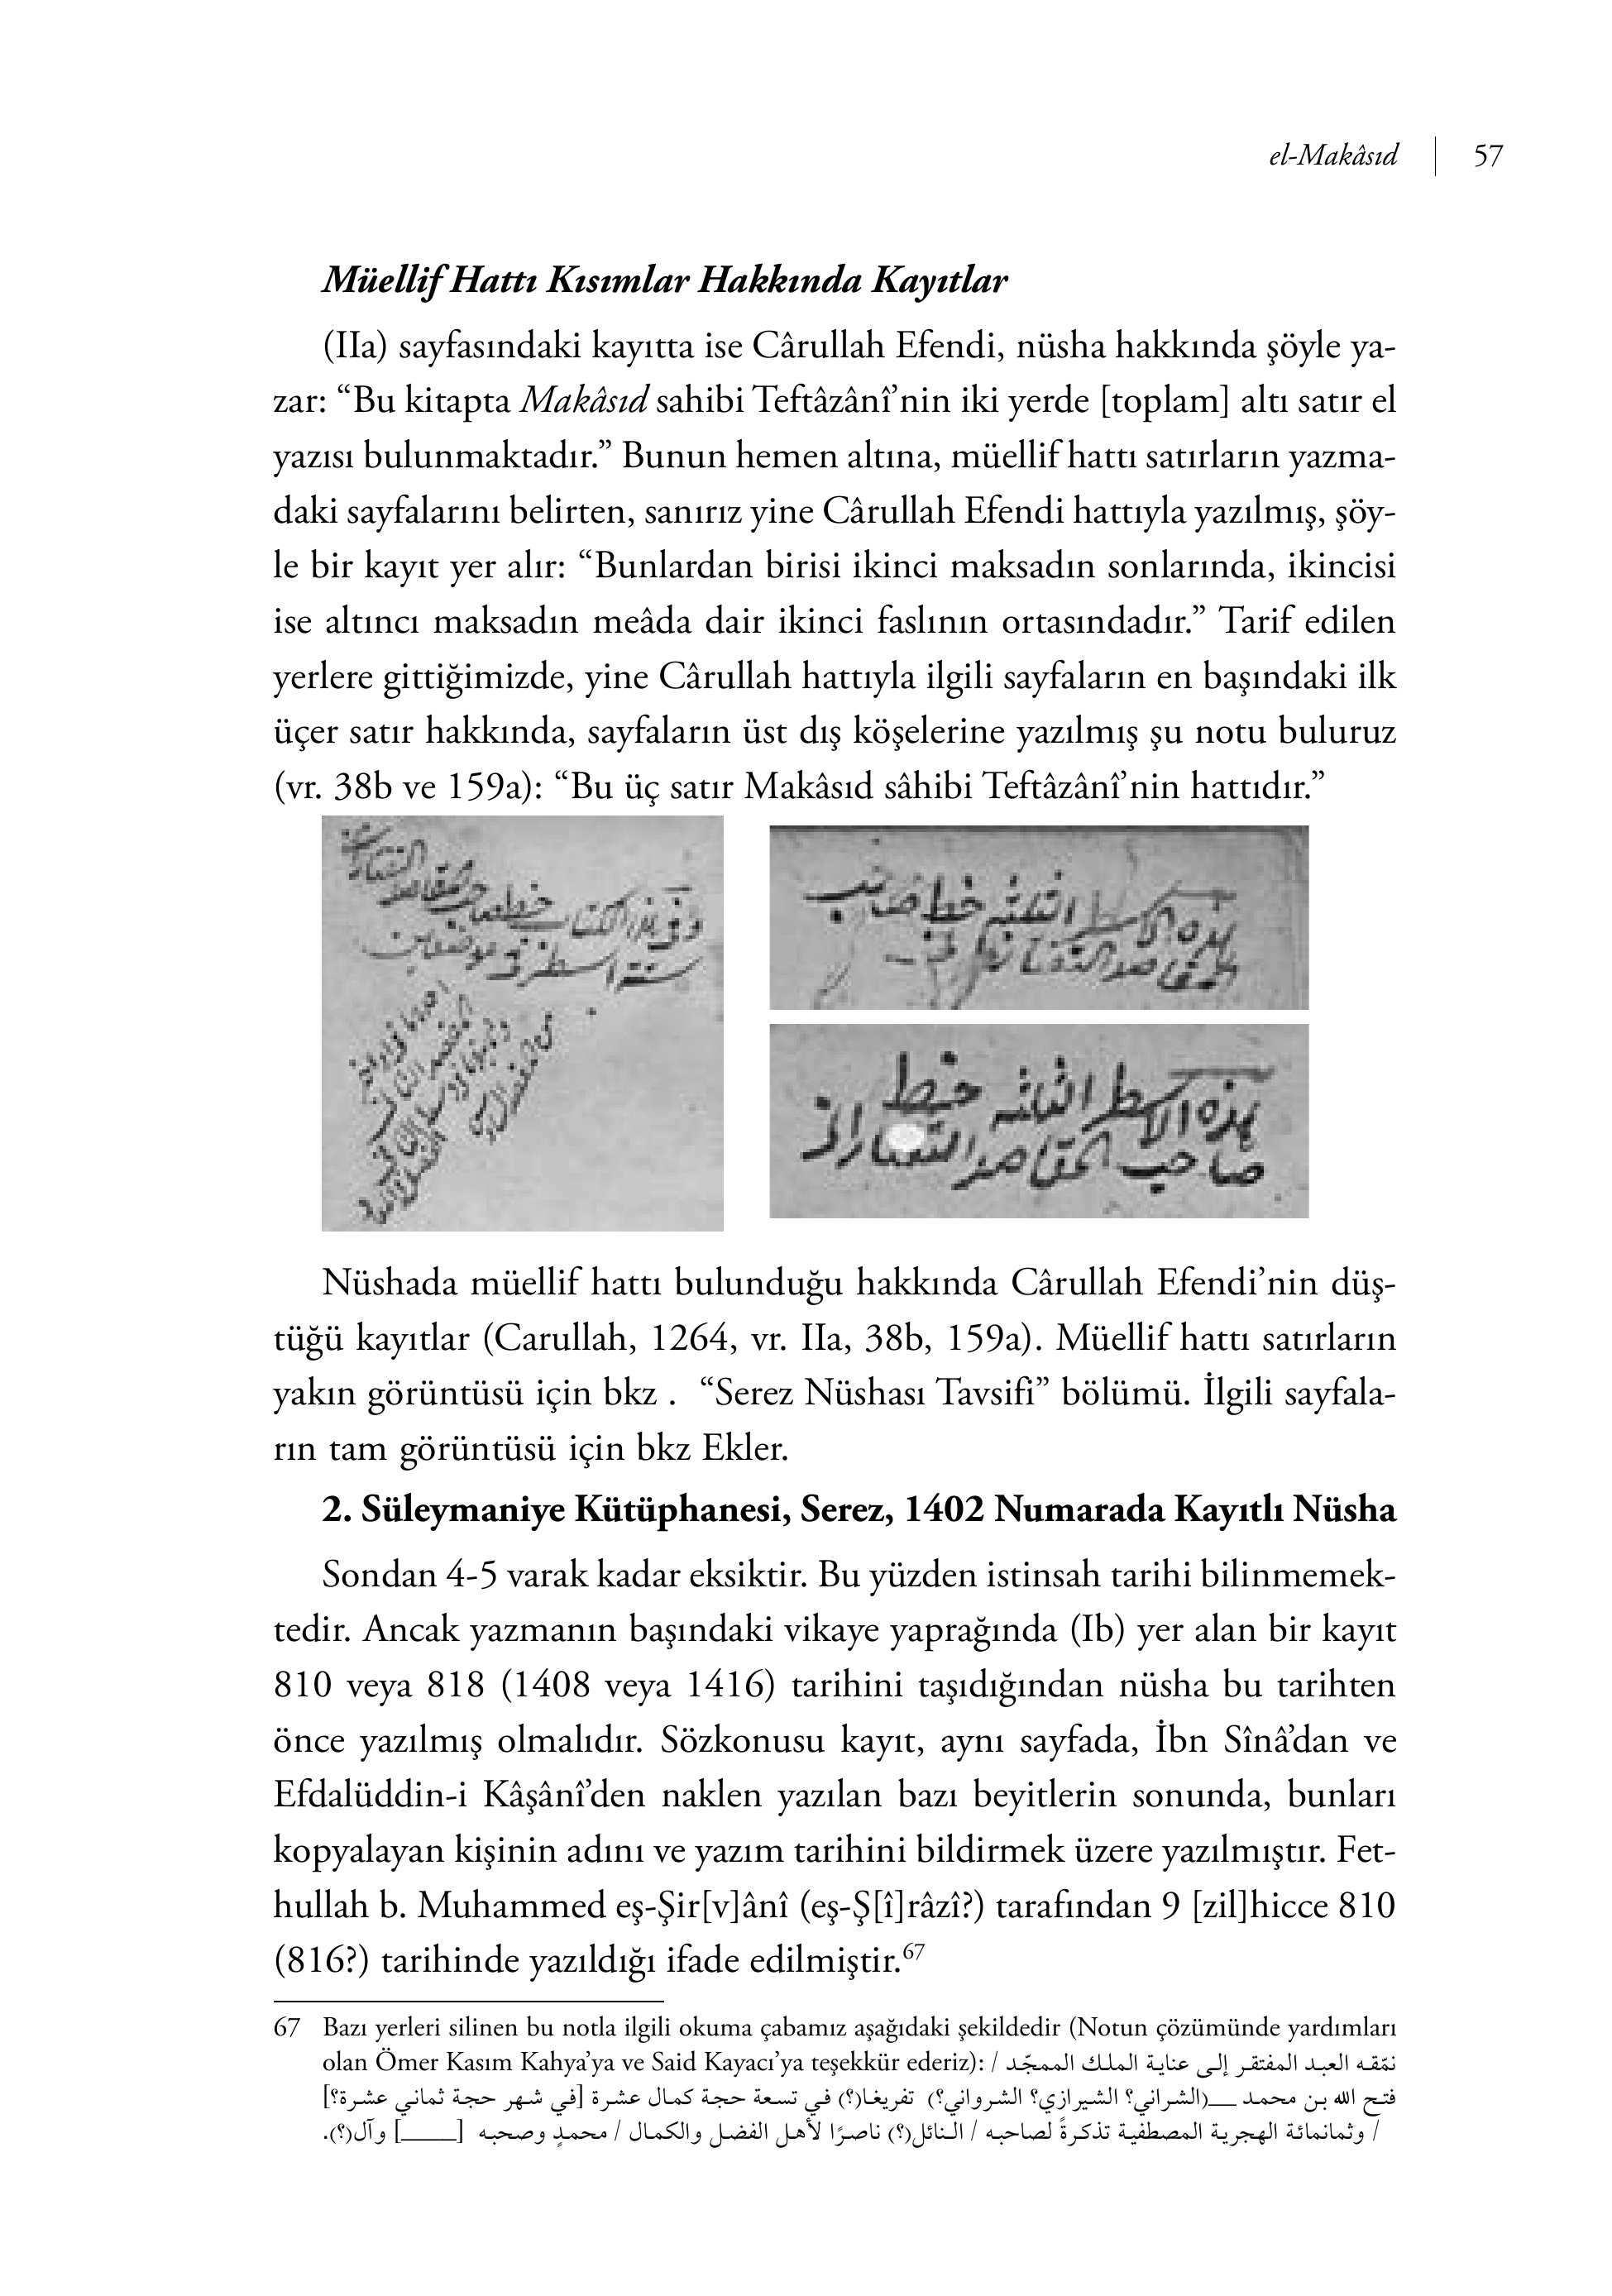 el-Makâsıd | 57
Müellif Hattı Kısımlar Hakkında Kayıtlar
(IIa) sayfasındaki kayıtta ise Cârullah Efendi, nüsha hakkında şöyle ya-
zar: “Bu kitapta Makâsıd sahibi Teftâzânî’nin iki yerde [toplam] altı satır el
yazısı bulunmaktadır.” Bunun hemen altına, müellif hattı satırların yazma-
daki sayfalarını belirten, sanırız yine Cârullah Efendi hattıyla yazılmış, şöy-
le bir kayıt yer alır: “Bunlardan birisi ikinci maksadın sonlarında, ikincisi
ise altıncı maksadın meâda dair ikinci faslının ortasındadır.” Tarif edilen
yerlere gittiğimizde, yine Cârullah hattıyla ilgili sayfaların en başındaki ilk
üçer satır hakkında, sayfaların üst dış köşelerine yazılmış şu notu buluruz
(vr. 38b ve 159a): “Bu üç satır Makâsıd sâhibi Teftâzânî’nin hattıdır.”
وفي هذا الكتاب خط صاحب المقاصد التفتازاني
ستة اسطر في موضعين
هذه الاسطر الثلثة خط صاحب
المقاصد التفتازاني
هذه الاسطر الثلثة خط
صاحب المقاصد التفتازاني
Nüshada müellif hattı bulunduğu hakkında Cârullah Efendi’nin düş-
tüğü kayıtlar (Carullah, 1264, vr. IIa, 38b, 159a). Müellif hattı satırların
yakın görüntüsü için bkz . “Serez Nüshası Tavsifi” bölümü. İlgili sayfala-
rın tam görüntüsü için bkz Ekler.
2. Süleymaniye Kütüphanesi, Serez, 1402 Numarada Kayıtlı Nüsha
Sondan 4-5 varak kadar eksiktir. Bu yüzden istinsah tarihi bilinmemek-
tedir. Ancak yazmanın başındaki vikaye yaprağında (Ib) yer alan bir kayıt
810 veya 818 (1408 veya 1416) tarihini taşıdığından nüsha bu tarihten
önce yazılmış olmalıdır. Sözkonusu kayıt, aynı sayfada, İbn Sînâ’dan ve
Efdalüddin-i Kâşânî’den naklen yazılan bazı beyitlerin sonunda, bunları
kopyalayan kişinin adını ve yazım tarihini bildirmek üzere yazılmıştır. Fet-
hullah b. Muhammed eş-Şir[v]ânî (eş-Ş[î]râzî?) tarafından 9 [zil]hicce 810
(816?) tarihinde yazıldığı ifade edilmiştir.67
67 Bazı yerleri silinen bu notla ilgili okuma çabamız aşağıdaki şekildedir (Notun çözümünde yardımları
olan Ömer Kasım Kahya’ya ve Said Kayacı’ya teşekkür ederiz): نمّقه العبد المفتقر إلى عناية الملك الممجّد /
فتح الله بن محمد ___(الشراني؟ الشيرازي؟ الشرواني؟) تفريغا(؟) في تسعة حجة كمال عشرة [في شهر حجة ثماني عشرة؟]
/ وثمانمائة الهجرية المصطفية تذكرةً لصاحبه / النائل(؟) ناصرًا لأهل الفضل والكمال / محمدٍ وصحبه [_____] وآل(؟).